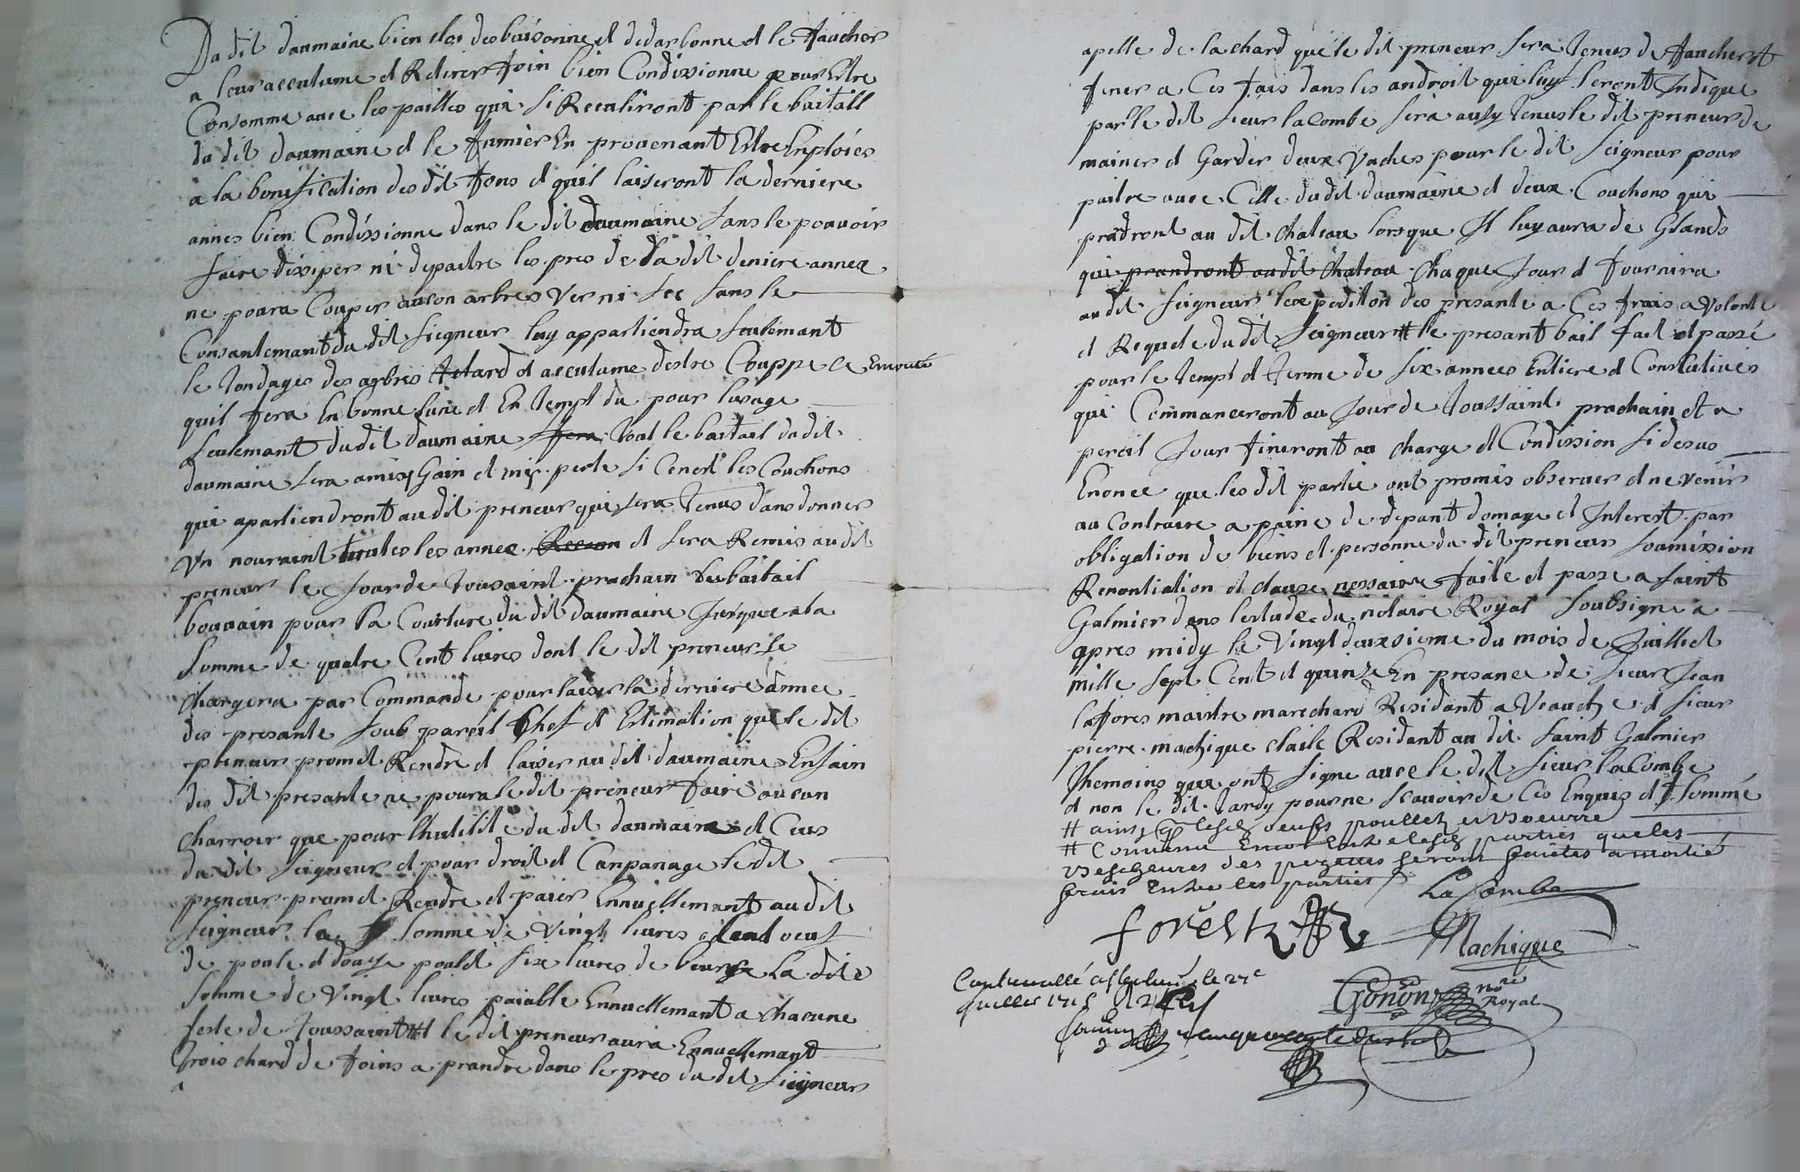 Du dit daumaine bien clos desbuisonne et desarbonne et le faucher
a leur accutume et Retirer foin bien Condissionne pour Estre
Consomme avec les pailles qui si Recultiront par le baitail
du dit daumaine et le fumier En provenant Estre Enploiés
a la bonification des dit fons et quil laiseront la derniere
annes bien Condissionne dans le dit daumaine sans le pouvoir
faire dixiper ni depaitre les pres de la dit deniere annee
ne poura Couper aucon arbres ver ni sec sans le
Consantemant du dit seigneur luy appartiendra seulemant
le tondages des arbres et accutume destre Couppe et Emouté
quil fera En bonne lune et En tempt du pour lusage
seulemant du dit daumaine tout le baitail du dit
daumaine sera amis Gain et mis perte si Cenest les Couchons
qui apartiendront au dit preneur qui sera tenus dans donner
Un nouraint toutes les annee et sera Remis au dit
preneur le Jour de toussaint prachain du baitail
bouvain pour la Courture du dit daumaine Jusque a la
somme de quatre Cent livres dont le dit preneur se
Chargera par Commande pour laiser la derniere annee
des presante soub pareil Chef et Estimation que le dit
preneur promet Rendre et laiser au dit daumaine En fain
des dit presante ne poura le dit preneur faire aucun
charroir que pour lhutilité du dit daumaine et Ceus
du dit seigneur et pour droit et Canpanage le dit
preneur promet Rendre et paier Ennuellemant au dit
seigneur la somme de vingt livres Cent oeuf
de poule et douze poulet six livres de beurre La dite
somme de vingt livres paiable Ennuellemant a chacune
feste de toussaint # et le dit preneur aura Ennuellemant
trois chard de foins a prandre dans le pres du dit seigneur
apelle de lachard que le dit preneur sera tenus de faucher et
fener a Ces fais dans les androit qui luy seront Indique
par le dit sieur laCombe sera ausy tenus le dit preneur de
mainer et Garder deux vaches pour le dit seigneur pour
paitre avec Celle du dit daumaine et deux Couchons qui
prandront au dit chateau lorsque Il luy aura de Glands
qui prandront au dit chateau chaque Jour et fournira
au dit seigneur lexpedition des presante a Ces frais a volonte
et Requete du dit seigneur # le presant bail fait et passé
pour le tempt et terme de six annees Entiere et Consecutives
qui Commanceront au Jour de toussaint prachain et a
pereil Jour fineront au charge et Condission si desus
Enonce que les dit partie ont promis observer et ne venir
au Contraire a paine de depant domage et Interest par
obligation de biens et personne du dit preneur soumission
Renontiation et clause nessaire faite et passe a saint
Galmier dans lestude du notaire Royal soubsigne a
apres midy le vingt deuxsieme du mois de Juillet
mille sept Cent et quinze En presance de sieur Jean
lafores maistre marechard Residant a Veauche et sieur
pierre machique claile Residant au dit saint Galmier
themoins que ont signe avec le dit sieur laCombe
et non le dit tardy pour ne scavoir de Ces Enquis et sommé
# ainsy que lesd oeufs poullet et beurre
# Convenu Encor Entre lesd parties que les
frais Entre les parties
La Combe
forestz
Machique
Gonon nore
Royal
Juillet 1715